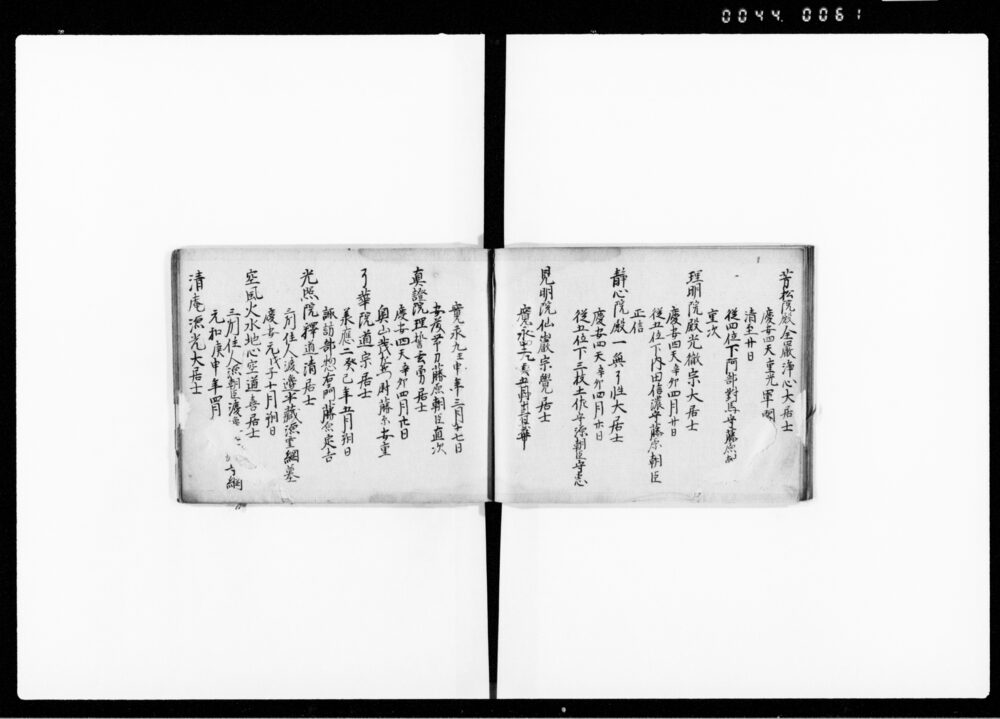 0044 0061
芳松院殿全巖淨心大居士
慶安四天重光單閼
清至廿日
從四位下阿部對馬守藤原朝
重次
理明院殿光徹宗大居士
慶安四天辛卯四月廿日
從五位下內田信濃守藤原朝臣
正信
靜心院殿一無了性大居士
慶安四天辛卯四月廿日
從五位下三枝土佐守源朝臣守惠
見明院仙巖宗覺居士
寬永
寬永九壬申年三月十七日
安藤藤原朝臣直次
真證院理誓玄勇居士
慶安四天辛卯四月廿日
奧山藤原安重
了華院道宗居士
承應二癸巳年五月朔日
諏訪部惣右門藤原定吉
光照院釋道清居士
慶安元戊子十月朔日
三刕住人渡邊半藏源重綱墓
空風火水地心空道喜居士
三刕住人源朝臣渡
守綱
元和庚申年四月
清庵源光大居士